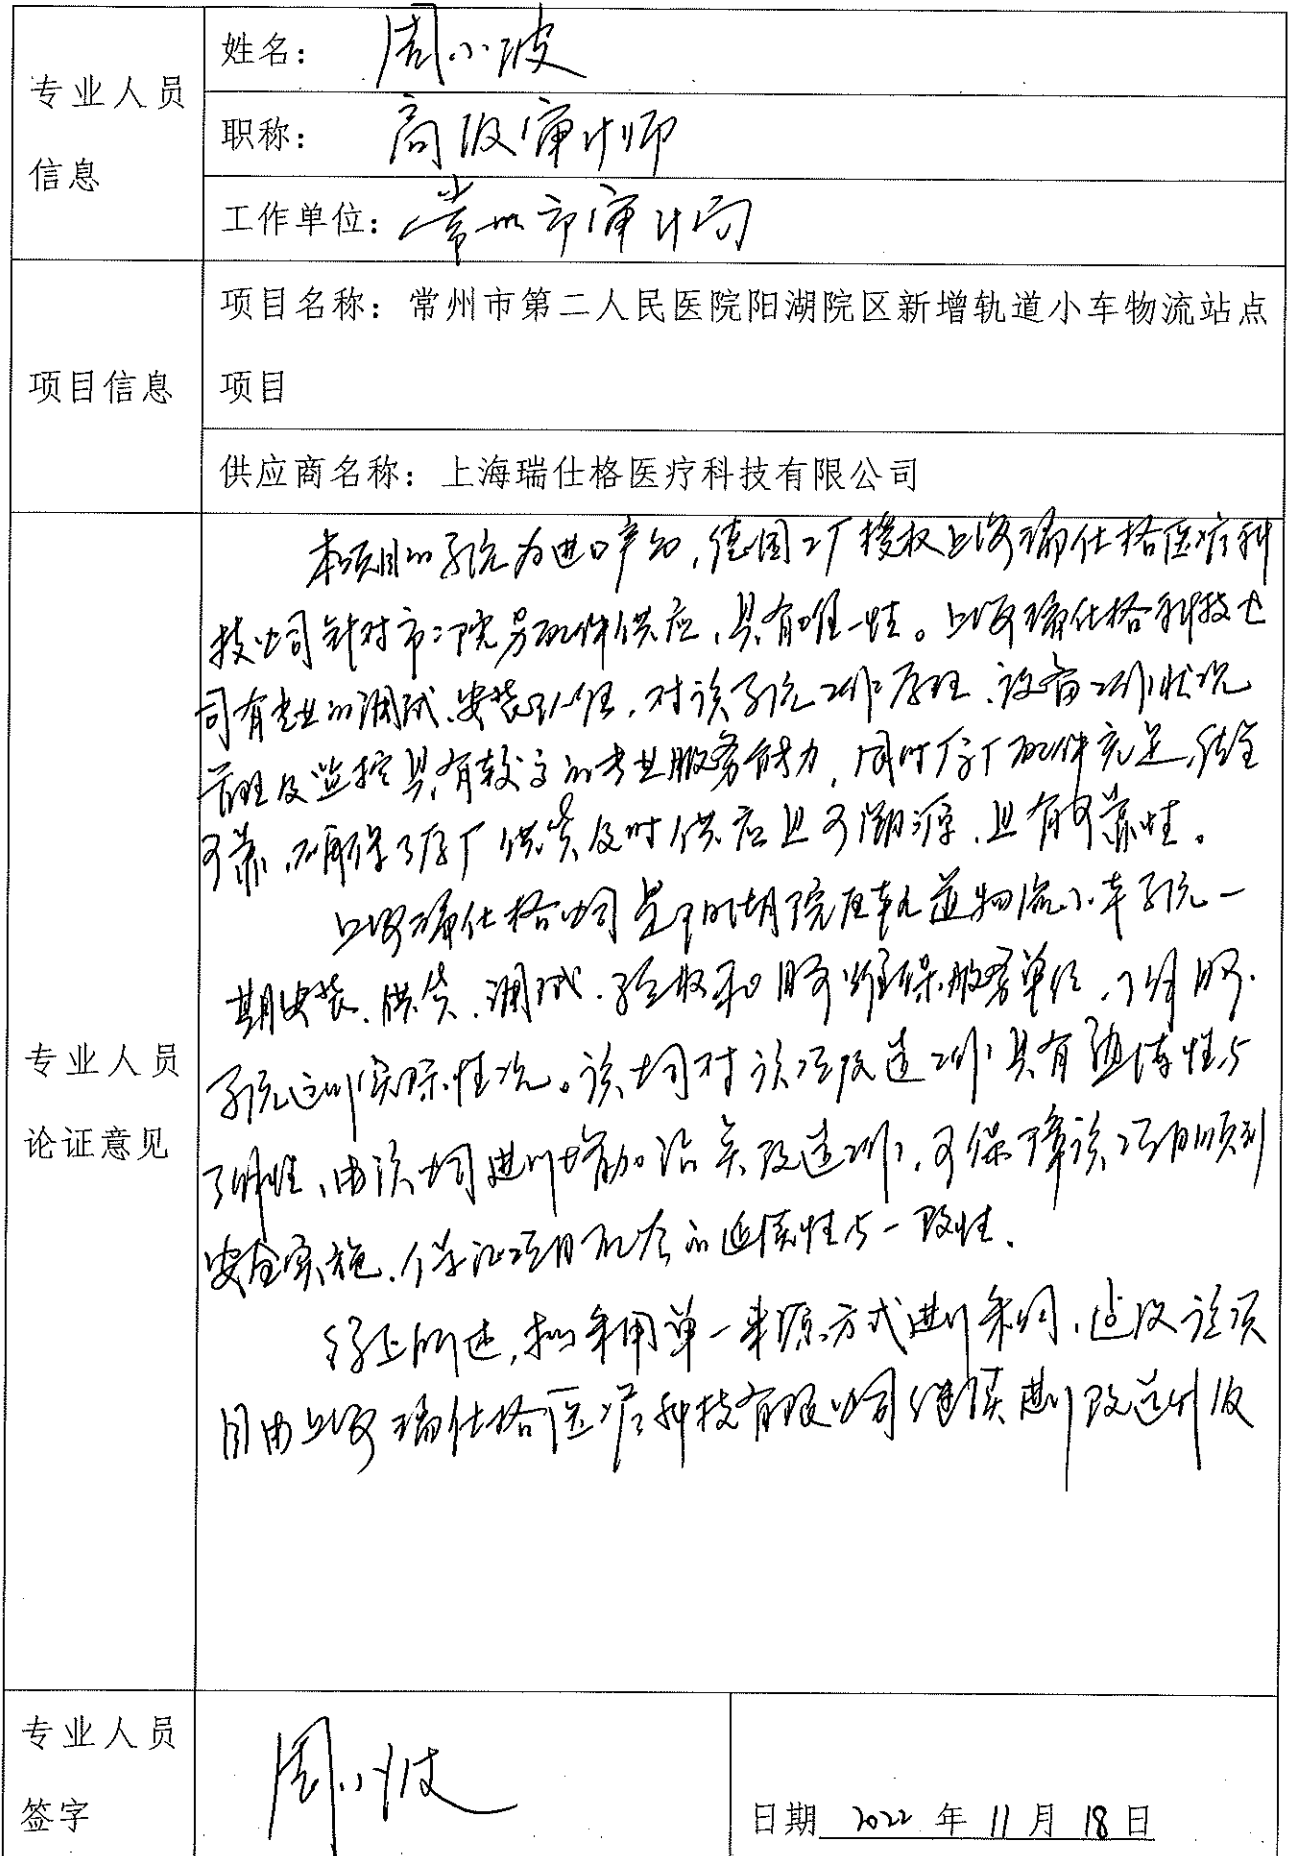 专业人员
信息
姓名：周小波
职称：高级审计师
工作单位：常州市审计局
项目信息
项目名称：常州市第二人民医院阳湖院区新增轨道小车物流站点
项目
供应商名称：上海瑞仕格医疗科技有限公司
专业人员
论证意见
本项目的系统为进口产品，德国工厂授权上海瑞仕格医疗科
技公司针对市二院号配件供应，具有唯一性。上海瑞仕格科技公
司有专业的调试、安装队伍，对该系统工作原理、设备工作状况
管理及监控具有较高的专业服务能力，同时原厂配件充足，安全
可靠，确保了原厂供货及时供应且可溯源，具有可靠性。
上海瑞仕格公司是阳湖院区轨道物流小车系统一
期安装、供货、调试、验收和服务维保服务单位，了解
系统运行实际情况。该公司对该项改造工作具有延续性与
了解性，由该公司进行增加站点改造工作，可保障该项目顺利
安全实施，保证项目配套的延续性与一致性。
综上所述，拟采用单一来源方式进行采购，建议该项
目由上海瑞仕格医疗科技有限公司继续进行改造升级
专业人员
签字
周小波
日期 2022 年 11 月 18 日